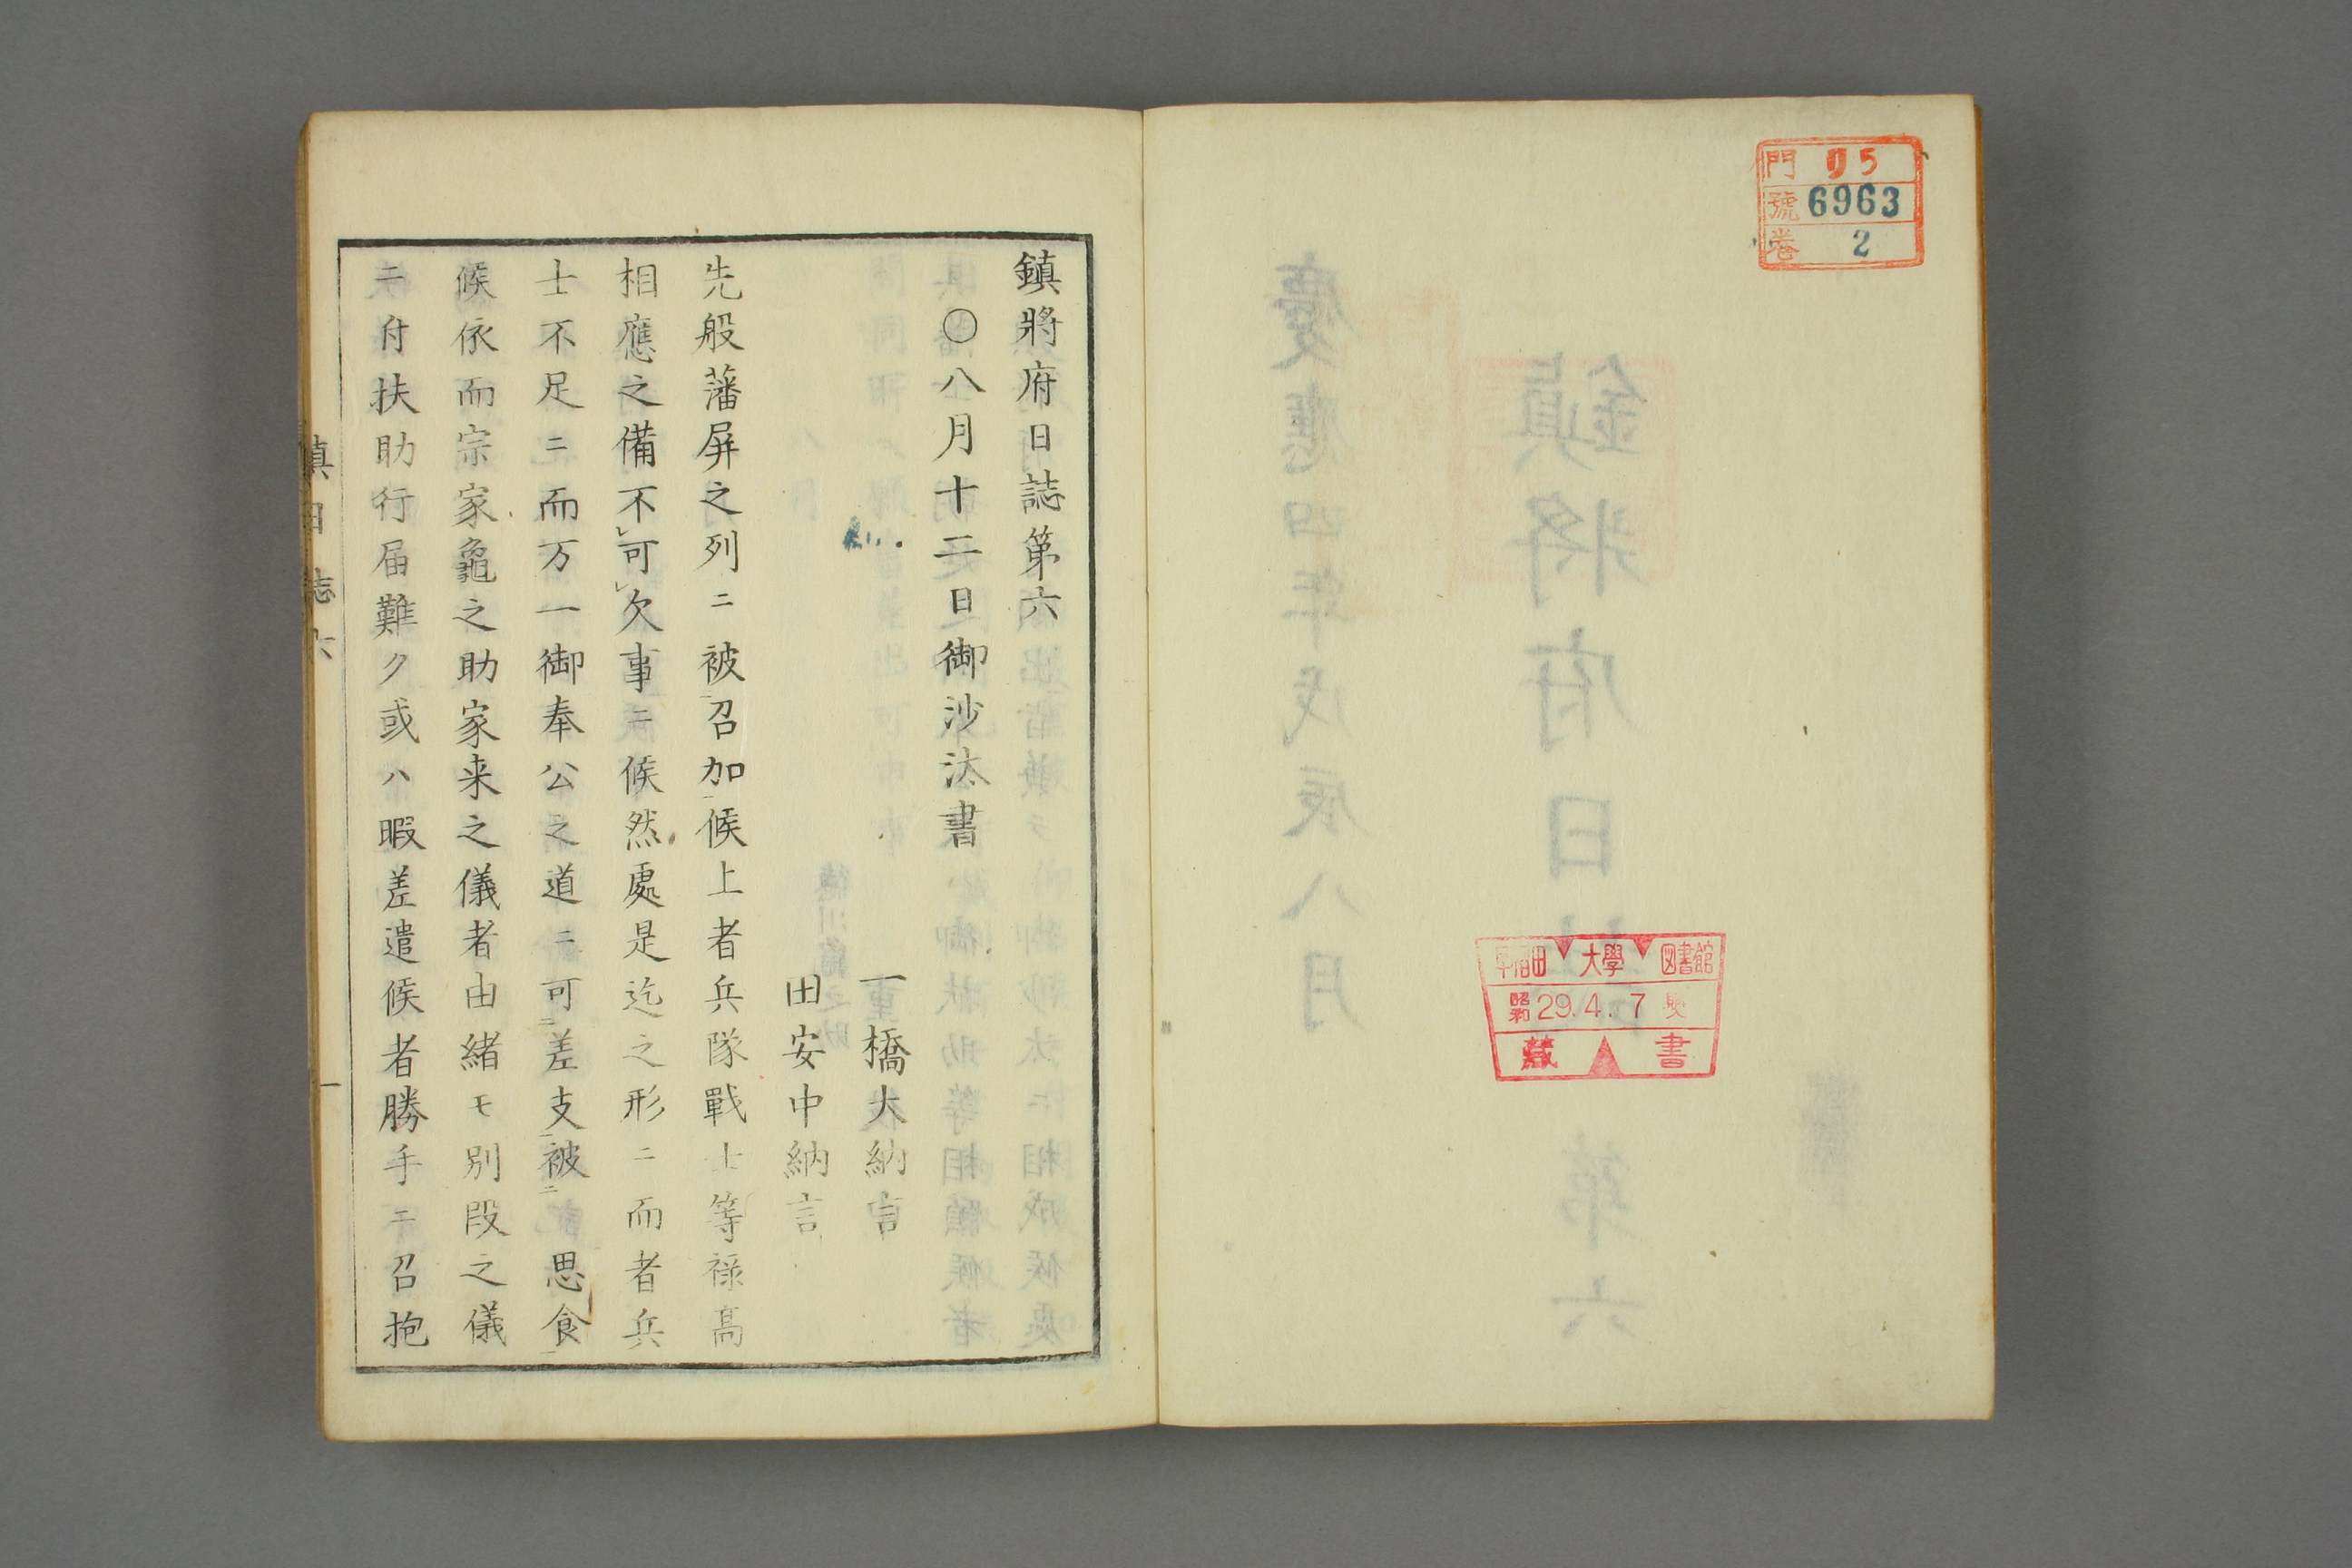 門 リ5
號 6963
卷 2
早稲田大學図書館
昭和29.4.7
藏書
鎮將府日誌第六
〇八月十二日御沙汰書
一橋大納言
田安中納言
先般藩屏之列ニ被召加候上者兵隊戰士等禄高
相應之備不可欠事ニ候然處是迄之形ニ而者兵
士不足ニ而万一御奉公之道ニ可差支被思食
候依而宗家龜之助家来之儀者由緒モ別段之儀
ニ付扶助行届難ク或ハ暇差遣候者勝手ニ召抱